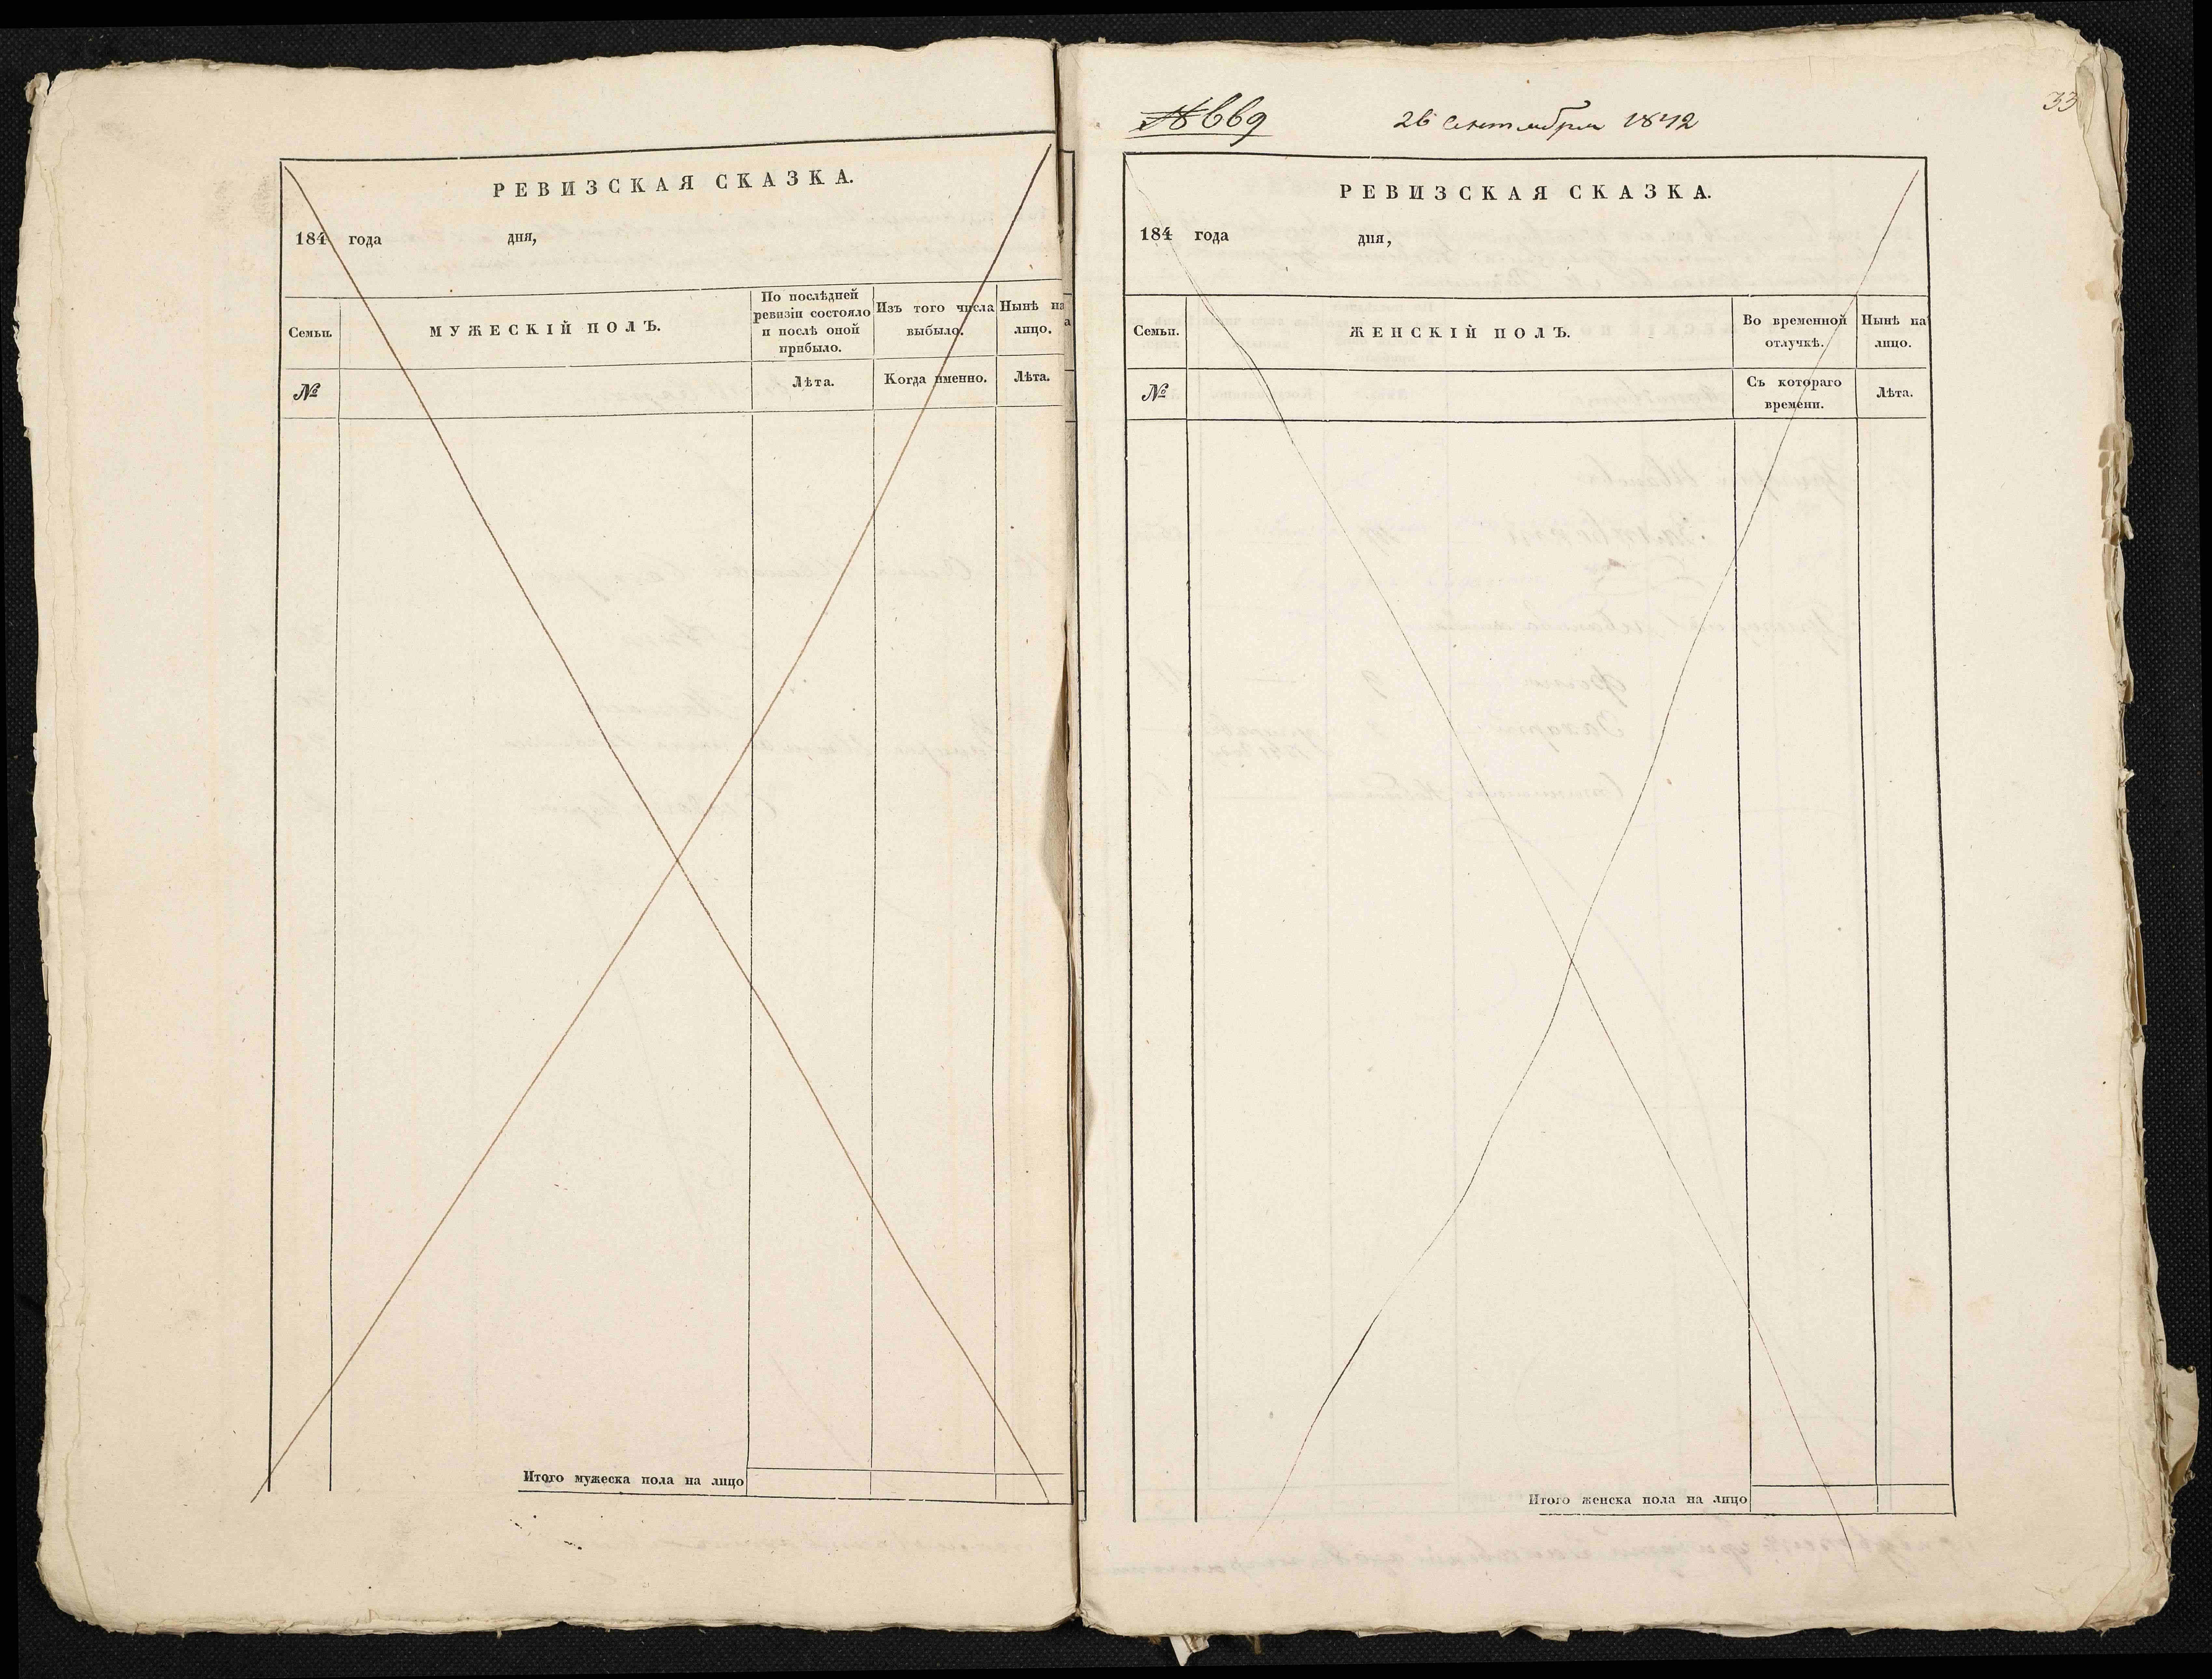 РЕВИЗСКАЯ СКАЗКА.
184 года дня,
Семьи.
МУЖЕСКІЙ ПОЛЪ.
По послѣдней
ревизіи состояло
и послѣ оной
прибыло.
Изъ того числа
выбыло.
Нынѣ на
лицо.
№
Лѣта.
Когда именно.
Лѣта.
Итого мужеска пола на лицо
33
№ 669
26 Сентября 1842
РЕВИЗСКАЯ СКАЗКА.
184 года дня,
Семьи.
ЖЕНСКІЙ ПОЛЪ.
Во временной
отлучкѣ.
Нынѣ на
лицо.
№
Съ котораго
времени.
Лѣта.
Итого женска пола на лицо